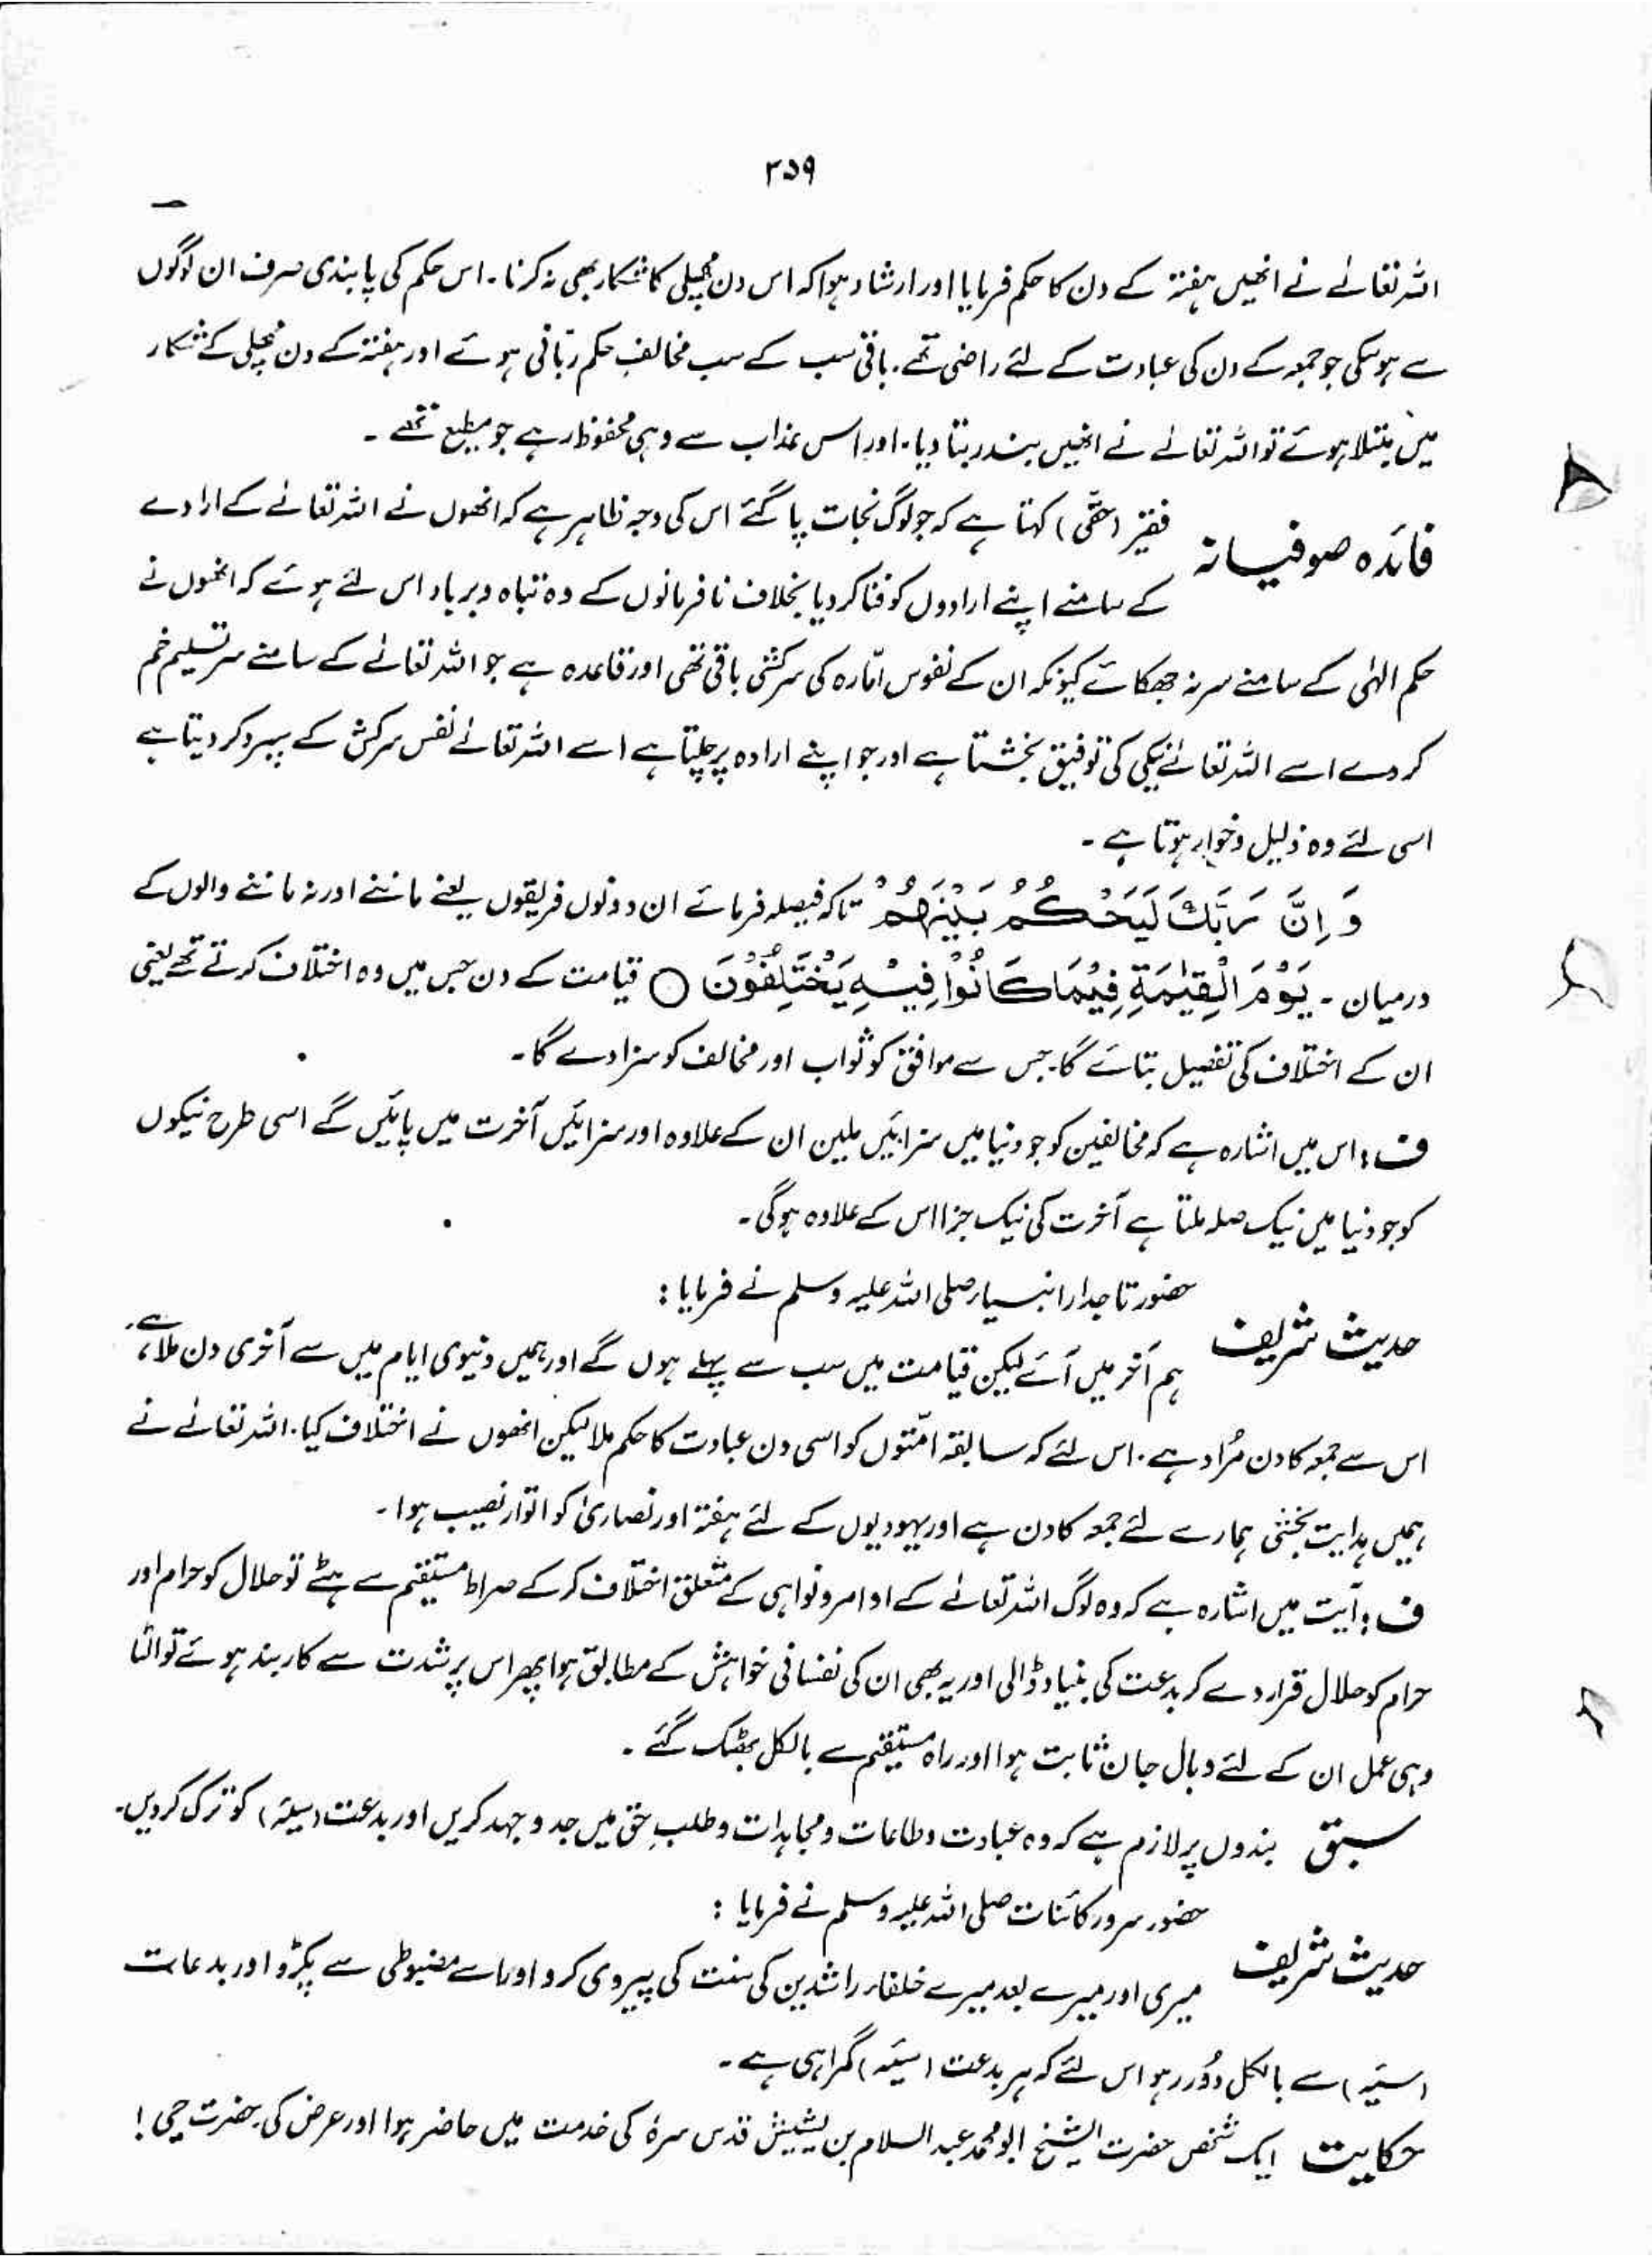 ۳۵۹
اللہ تعالےٰ نے انھیں ہفتہ کے دن کا حکم فرمایا اور ارشاد ہوا کہ اس دن مچھلی کا شکار بھی نہ کرنا ۔ اس حکم کی پابندی صرف ان لوگوں
سے ہو سکی جو جمعہ کے دن کی عبادت کے لئے راضی تھے ۔ باقی سب کے سب مخالفِ حکم ربّانی ہوئے اور ہفتہ کے دن مچھلی کے شکار
میں مبتلا ہوئے تو اللہ تعالےٰ نے انھیں بندر بنا دیا ۔ اور اس عذاب سے وہی محفوظ رہے جو مطیع تھے ۔
فائدہ صوفیانہ فقیر (حقی) کہتا ہے کہ جو لوگ نجات پا گئے اس کی وجہ ظاہر ہے کہ انھوں نے اللہ تعالےٰ کے ارادے
کے سامنے اپنے ارادوں کو فنا کر دیا بخلاف نافرمانوں کے وہ تباہ و برباد اس لئے ہوئے کہ انھوں نے
حکم الہٰی کے سامنے سر نہ جھکائے کیونکہ ان کے نفوس امّارہ کی سرکشی باقی تھی اور قاعدہ ہے جو اللہ تعالےٰ کے سامنے سر تسلیم خم
کر دے اسے اللہ تعالےٰ نیکی کی توفیق بخشتا ہے اور جو اپنے ارادہ پر چلتا ہے اسے اللہ تعالےٰ نفس سرکش کے سپرد کر دیتا ہے
اسی لئے وہ ذلیل و خوار ہوتا ہے ۔
وَ اِنَّ رَبَّكَ لَیَحْكُمُ بَیْنَهُمْ تاکہ فیصلہ فرمائے ان دونوں فریقوں یعنے ماننے اور نہ ماننے والوں کے
درمیان ۔ یَوْمَ الْقِیٰمَةِ فِیْمَا كَانُوْا فِیْهِ یَخْتَلِفُوْنَ ○ قیامت کے دن جس میں وہ اختلاف کرتے تھے یعنی
ان کے اختلاف کی تفصیل بتائے گا جس سے موافق کو ثواب اور مخالف کو سزا دے گا ۔
ف : اس میں اشارہ ہے کہ مخالفین کو جو دنیا میں سزائیں ملیں ان کے علاوہ اور سزائیں آخرت میں پائیں گے اسی طرح نیکوں
کو جو دنیا میں نیک صلہ ملتا ہے آخرت کی نیک جزا اس کے علاوہ ہو گی ۔
حضور تاجدار انبیاء صلی اللہ علیہ وسلم نے فرمایا :
حدیث شریف ہم آخر میں آئے لیکن قیامت میں سب سے پہلے ہوں گے اور ہمیں دنیوی ایام میں سے آخری دن ملا ہے،
اس سے جمعہ کا دن مُراد ہے ۔ اس لئے کہ سابقہ امّتوں کو اسی دن عبادت کا حکم ملا لیکن انھوں نے اختلاف کیا ۔ اللہ تعالےٰ نے
ہمیں ہدایت بخشی ہمارے لئے جمعہ کا دن ہے اور یہودیوں کے لئے ہفتہ اور نصاریٰ کو اتوار نصیب ہوا ۔
ف : آیت میں اشارہ ہے کہ وہ لوگ اللہ تعالےٰ کے اوامر و نواہی کے متعلق اختلاف کر کے صراط مستقیم سے ہٹے تو حلال کو حرام اور
حرام کو حلال قرار دے کر بدعت کی بنیاد ڈالی اور یہ بھی ان کی نفسانی خواہش کے مطابق ہوا پھر اس پر شدت سے کاربند ہوئے تو الٹا
وہی عمل ان کے لئے وبال جان ثابت ہوا اور راہ مستقیم سے بالکل بھٹک گئے ۔
سبق بندوں پر لازم ہے کہ وہ عبادت و طاعات و مجاہدات و طلبِ حق میں جد و جہد کریں اور بدعت (سیئہ) کو ترک کر دیں ۔
حضور سرور کائنات صلی اللہ علیہ وسلم نے فرمایا :
حدیث شریف میری اور میرے بعد میرے خلفاء راشدین کی سنت کی پیروی کرو اور اسے مضبوطی سے پکڑو اور بدعات
(سیئہ) سے بالکل دُور رہو اس لئے کہ ہر بدعت (سیئہ) گمراہی ہے ۔
حکایت ایک شخص حضرت الشیخ ابو محمد عبد السلام بن یشیش قدس سرہٗ کی خدمت میں حاضر ہوا اور عرض کی ۔ حضرت جی !